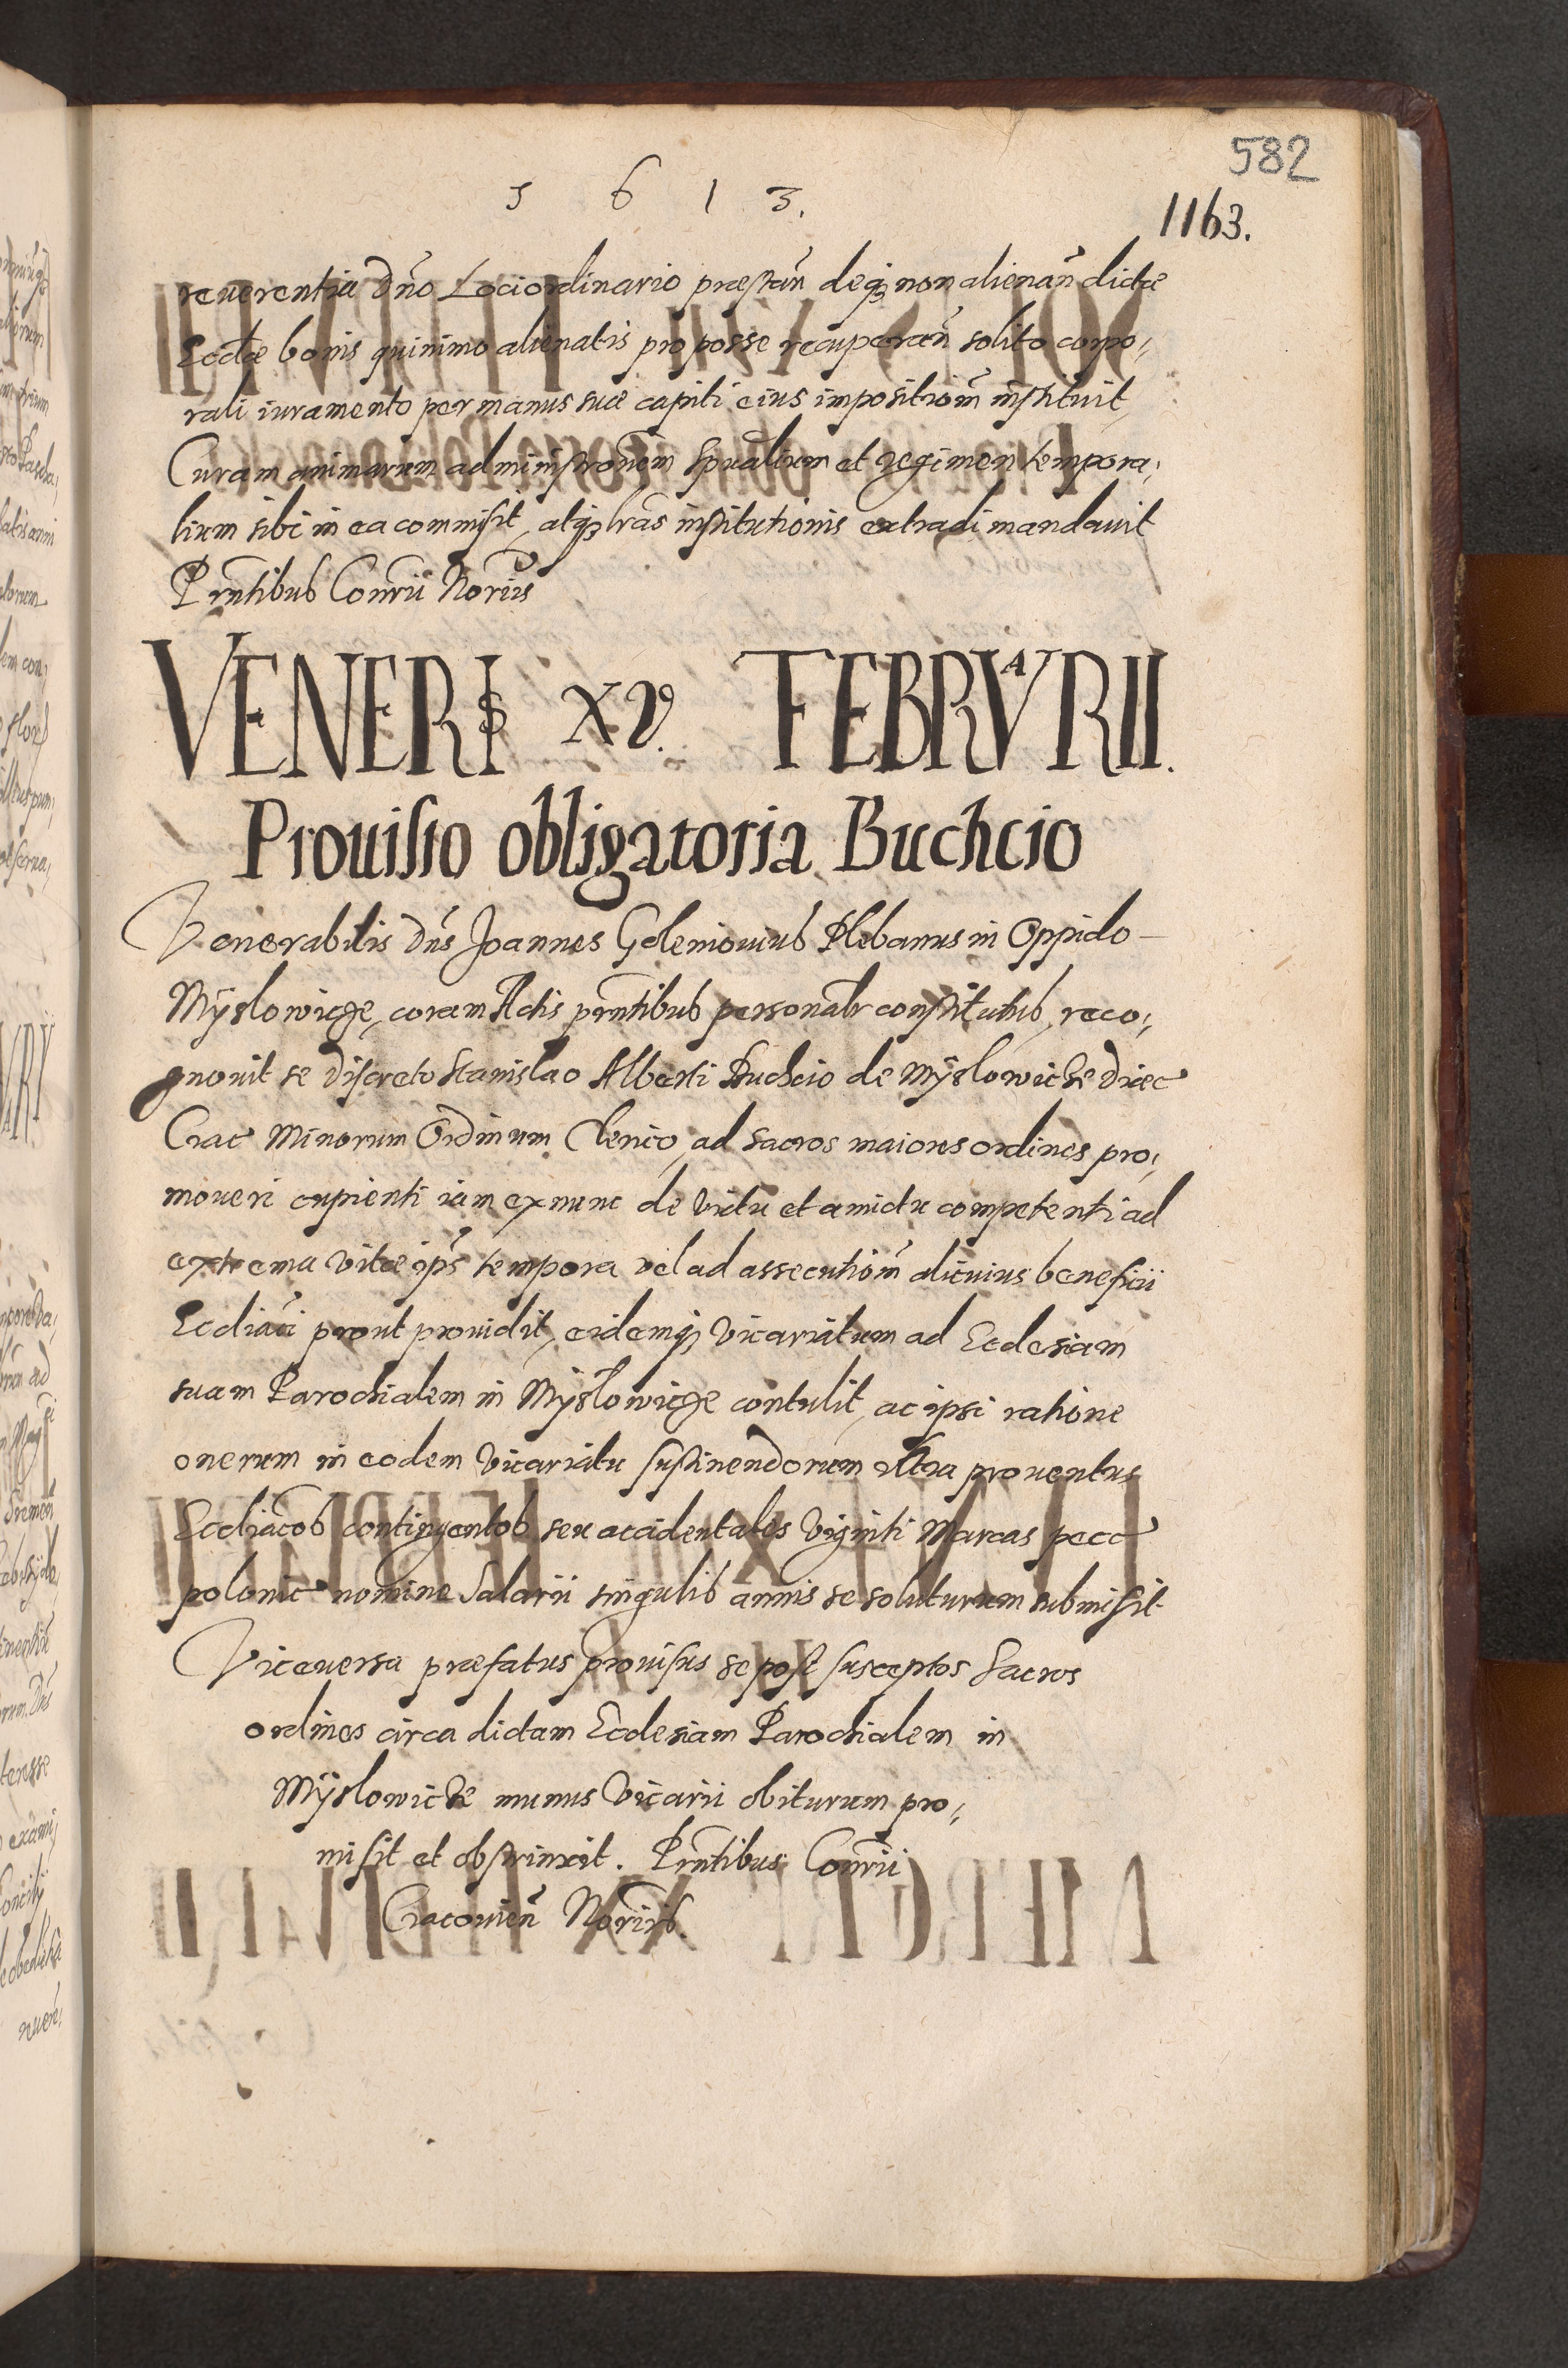 582
1 6 1 3.
1163.
reuerentia Dño Lociordinario præstañ deq3 non alienañ dictæ
Ecclæ bonis quinimo alienatis pro posse recuperañ solito corpo,
rali iuramento per manus suæ capiti eius impositioñm instituit
Curam animarum administroñem Spualium et regimen tempora,
lium sibi in ea commisit, atq3 lras institutionis extradi mandauit
Prñtibus Consrii Noriis
VENERIS XV. FEBRVARII.
Prouisio obligatoria Buchcio
Venerabilis Dñs Joannes Goleniouius Plebanus in Oppido
Mÿslowicze, coram Actis prñtibus personalr constitutus, reco,
gnouit se Discreto Stanislao Alberti Buchcio de Mÿslowicze Diæc
Crac Minorum Ordinum Clerico, ad sacros maiores ordines pro,
moueri cupienti iam ex nunc de Victu et amictu competenti ad
extrema Vitæ ips tempora vel ad assecutioñm alicuius beneficii
Ecclliaci prout prouidit, eidemq3 Vicariatum ad Ecclesiam
suam Parochialem in Mÿslowicze contulit, ac ipsi ratione
onerum in eodem Vicariatu sustinendorum vltra prouentus
Eccliacos contingentes seu accidentales Viginti Marcas pecc
polonic nomine Salarii singulis annis se soluturum submisit
Viceuersa præfatus prouisus se post susceptos Sacros
ordines circa dictam Ecclesiam Parochialem in
Mÿslowicze munus Vicarii obiturum pro,
misit et obstrinxit. Prñtibus Consrii
Cracouieñ Noriis.